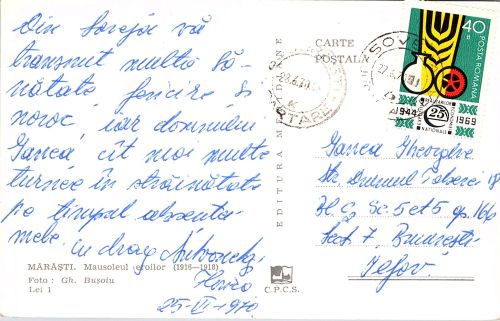 Din Soveja vă
transmit multă să-
nătate, fericire și
noroc, iar domnului
Ganea, cît mai multe
turnee în străinătate
pe timpul absenta-
mele cu drag
Horea
25-VI-1970
MĂRĂȘTI. Mausoleul eroilor (1916—1918)
Foto: Gh. Bușoiu
Lei 1
EDITURA MERIDIANE
C.P.C.S.
CARTE
POȘTALĂ
40
POSTA ROMANA
1944
25
1969
Ganea Gheorghe
Str. Drumul Taberei 18
Bl. C2 Sc. 5 et 5 ap. 166
Sect 7, București
Jlfov.